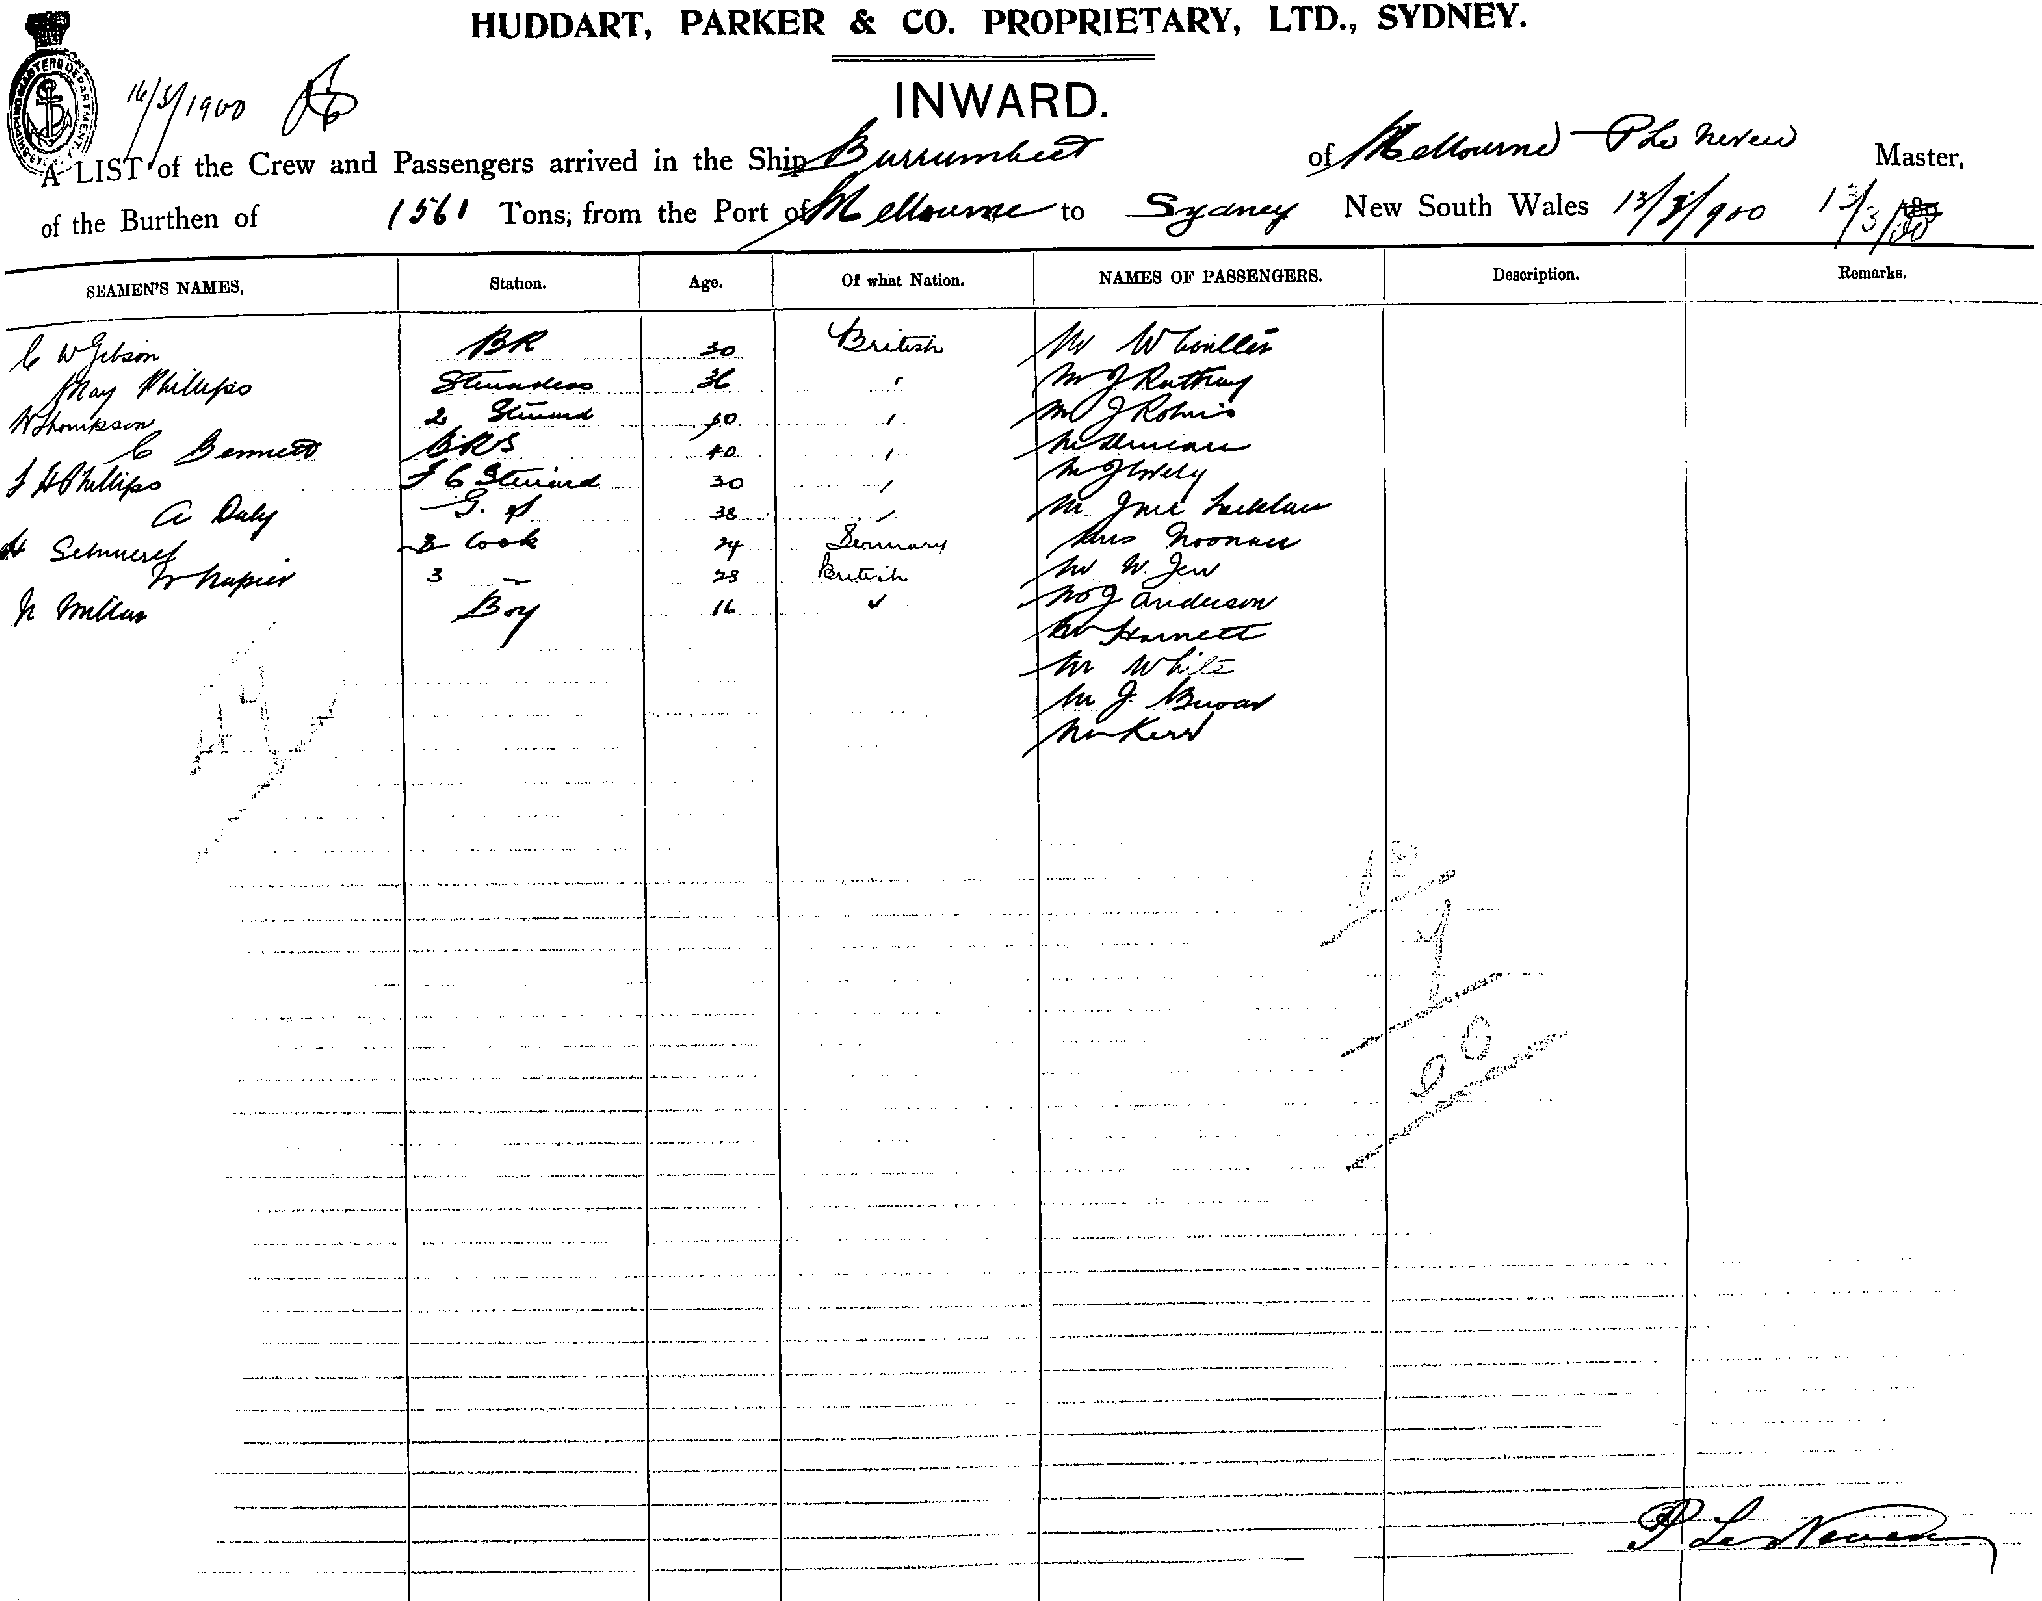 HUDDART, PARKER & CO. PROPRIETARY, LTD., SYDNEY.
16/3/1900
INWARD.
A LIST of the Crew and Passengers arrived in the Ship Burrumbeet of Melbourne P Le Neveu Master,
of the Burthen of 1561 Tons, from the Port of Melbourne to Sydney New South Wales 13/3/900 13/3/00
SEAMEN'S NAMES, Station. Age. Of what Nation. NAMES OF PASSENGERS. Description. Remarks.
C W Gibson BR 30 British Mr W
May Phillips Stewardess 36 " Mr J Rathray
W Thomkson 2 Steward 40 " Mr J
C Bennett BRS 40 " Mr Duncan
J H Phillips F C Steward 30 " Mr J
A Daly G. 38 " Mr
H 2 Cook 24 Germany Mrs Noonan
W Napier 3 " 28 British Mr W.
N Millar Boy 16 " J Anderson
Mr Harnett
Mr White
Mr J.
Mr Kerr
P Le Neveu